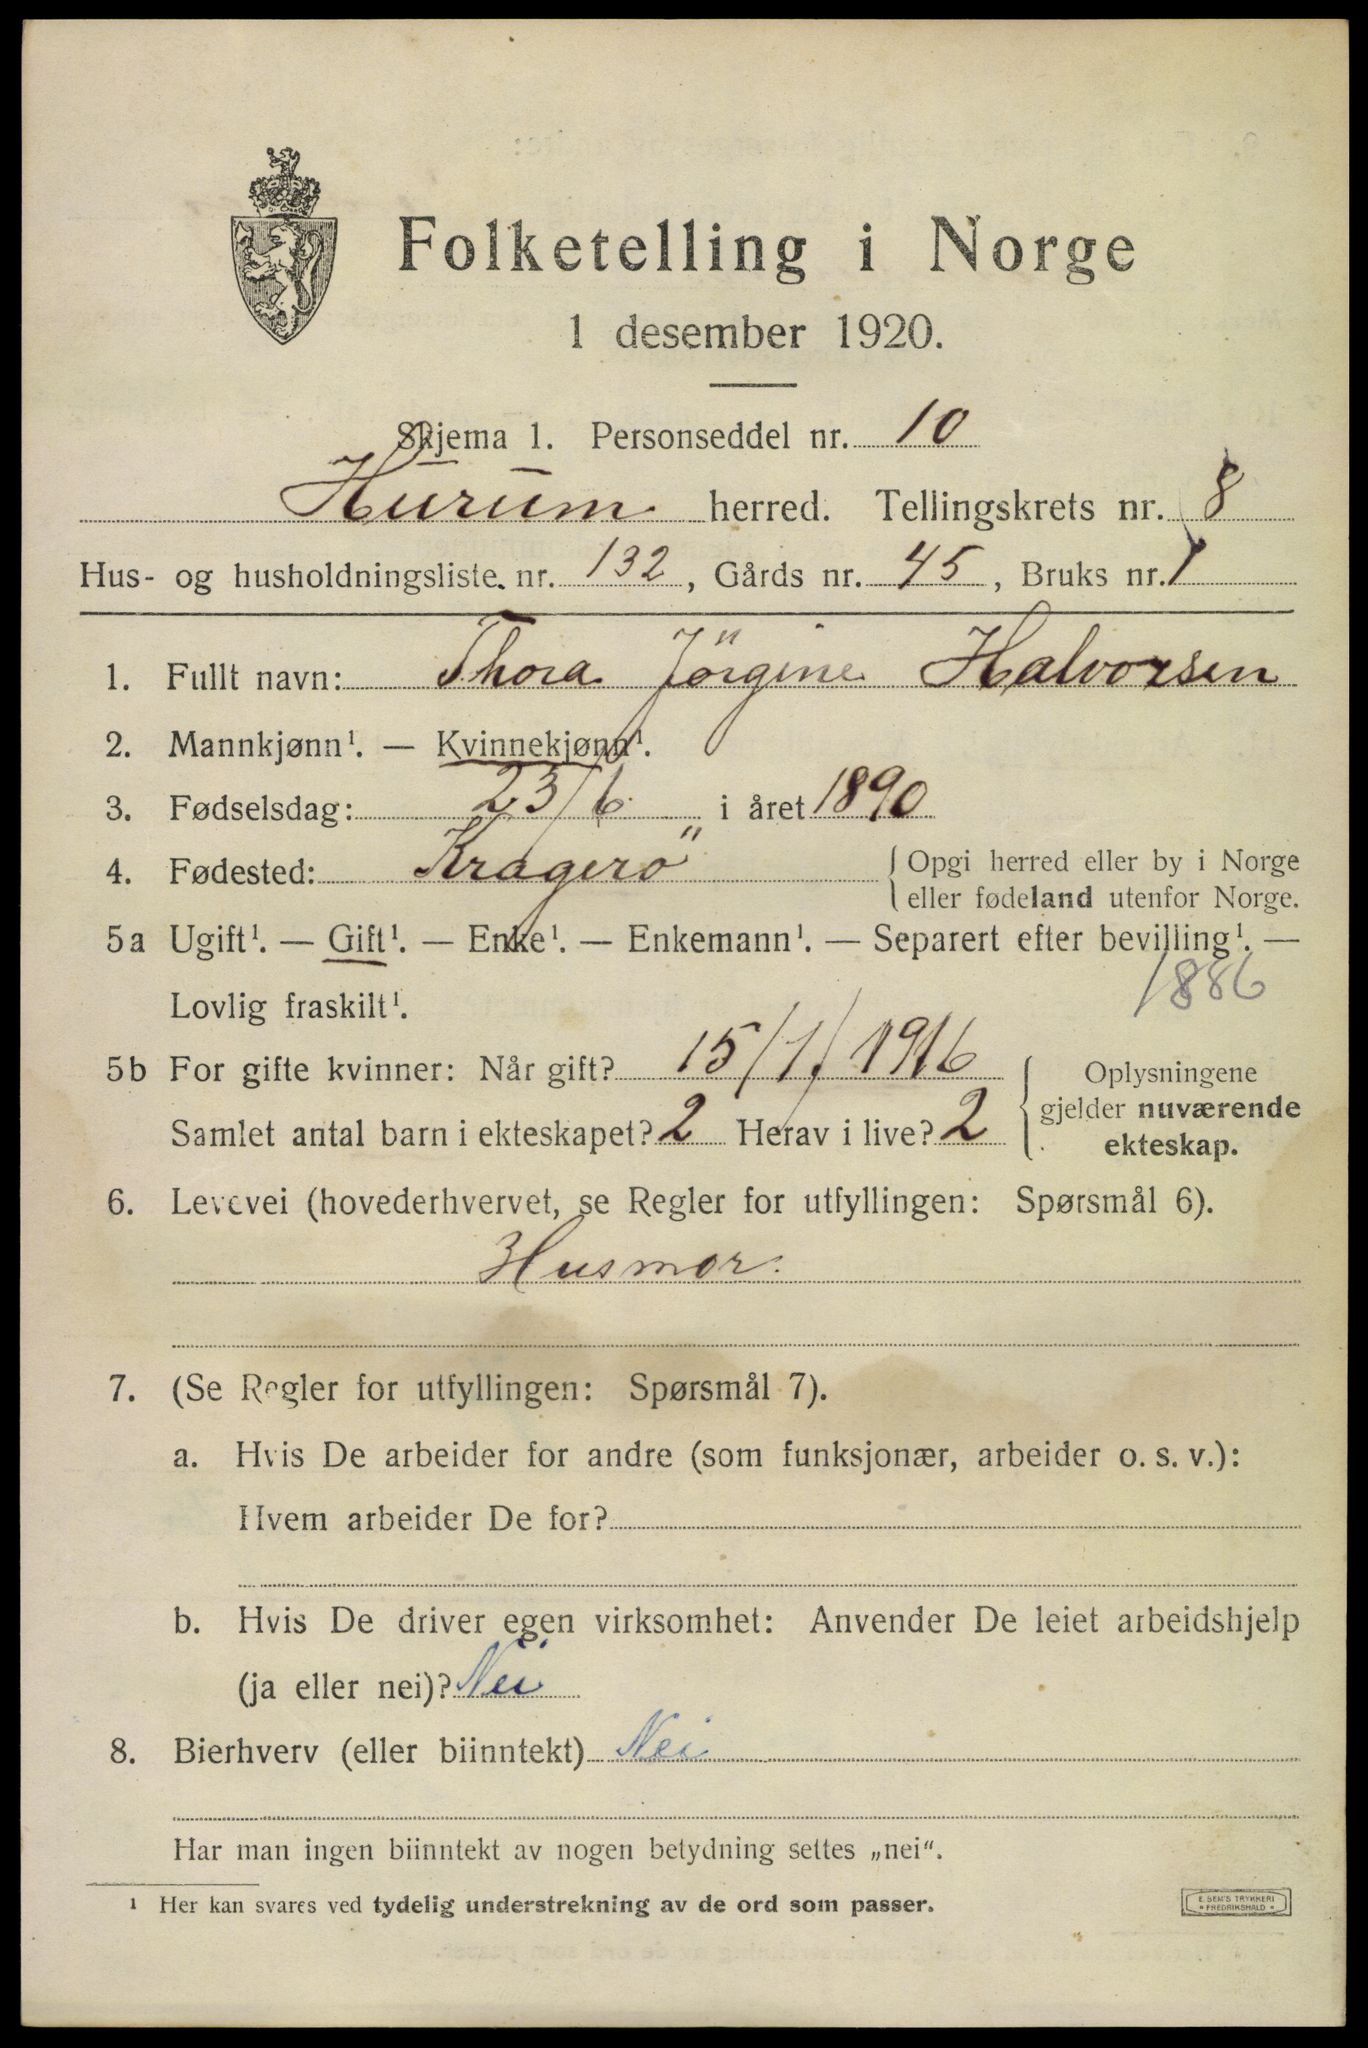 Folketelling i Norge
1 desember 1920.
Skjema 1. Personseddel nr. 10
Hurum herred. Tellingskrets nr. 8
Hus- og husholdningsliste nr. 132, Gårds nr. 45, Bruks nr. 1
1. Fullt navn: Thora Jörgine Halvorsen
2. Mannkjønn¹. — Kvinnekjønn¹.
3. Fødselsdag: 23/6 i året 1890
4. Fødested: Kragerö {Opgi herred eller by i Norge
eller fødeland utenfor Norge.
5a Ugift¹. — Gift¹. — Enke¹. — Enkemann¹. — Separert efter bevilling¹. —
Lovlig fraskilt¹. 1886
5b For gifte kvinner: Når gift? 15/1. 1916
Samlet antal barn i ekteskapet? 2 Herav i live? 2
Oplysningene
gjelder nuværende
ekteskap.
6. Levevei (hovederhvervet, se Regler for utfyllingen: Spørsmål 6).
Husmor.
7. (Se Regler for utfyllingen: Spørsmål 7).
a. Hvis De arbeider for andre (som funksjonær, arbeider o. s. v.):
Hvem arbeider De for?
b. Hvis De driver egen virksomhet: Anvender De leiet arbeidshjelp
(ja eller nei)? Nei
8. Bierhverv (eller biinntekt) Nei
Har man ingen biinntekt av nogen betydning settes „nei".
¹ Her kan svares ved tydelig understrekning av de ord som passer.
E. SEM'S TRYKKERI
FREDRIKSHALD